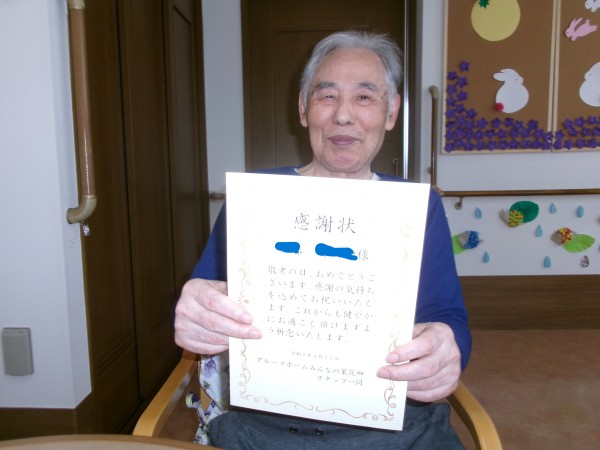 感謝状
様
敬老の日、おめでとうご
ざいます。感謝の気持ち
を込めてお祝いいたし
ます。これからも健やか
にお過ごし頂けますよ
う祈念いたします。
グループホームみんなの家花畑
スタッフ一同